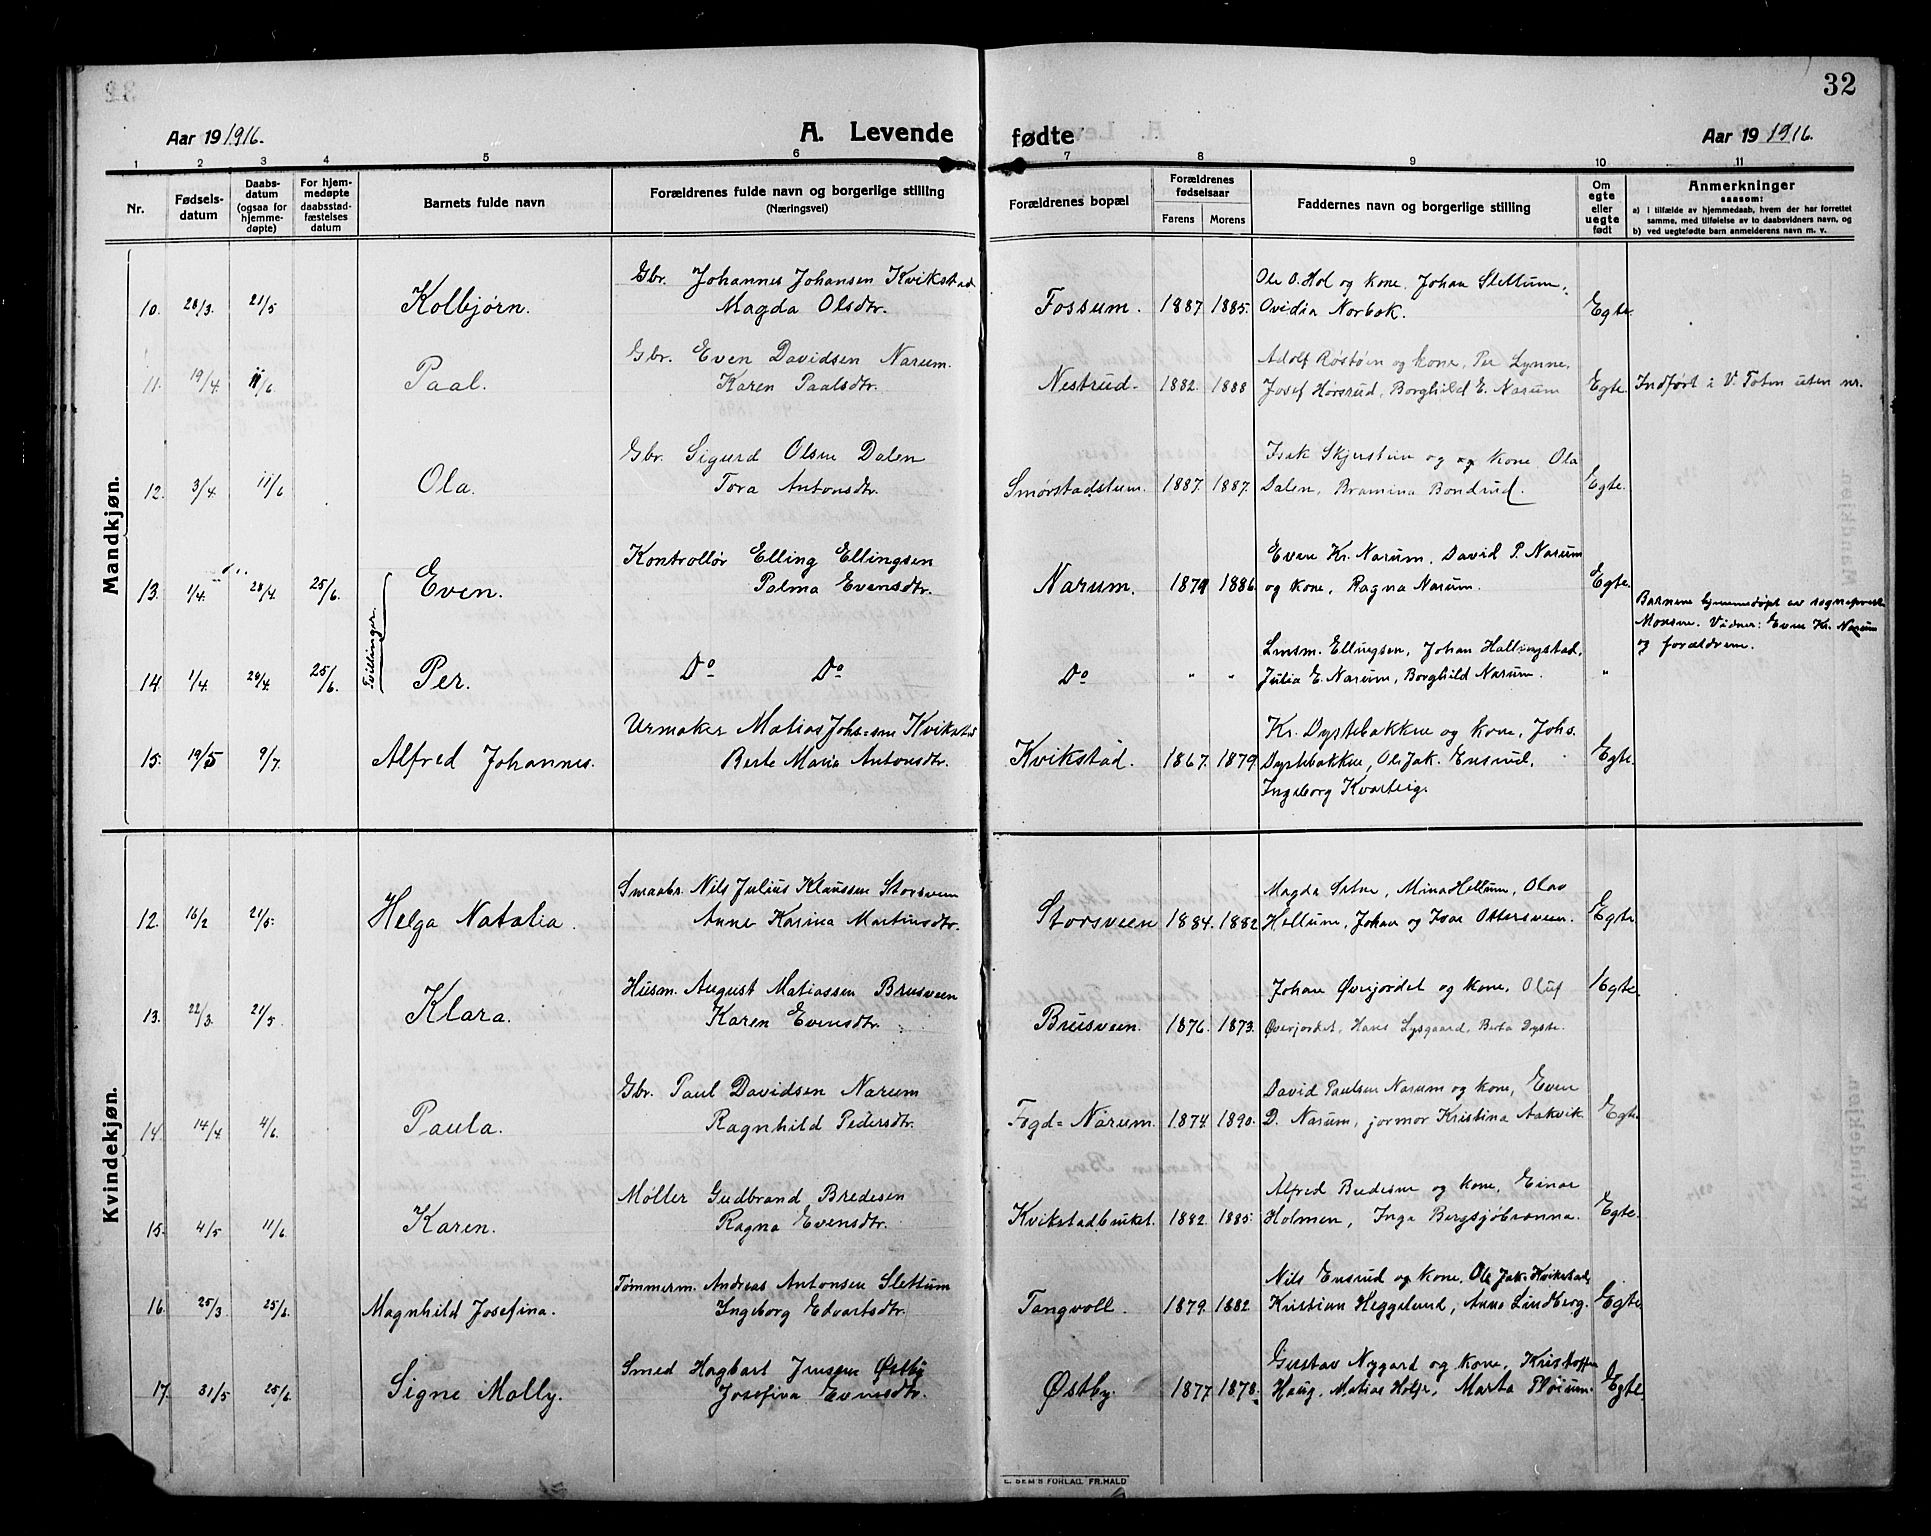 32
Aar 19 1916.
A. Levende fødte
Aar 19 1916.
1 2 3 4 5 6 7 8 9 10 11
Nr.
Fødsels-
datum
Daabs-
datum
(ogsaa for
hjemme-
døpte)
For hjem-
medøpte
daabsstad-
fæstelses
datum
Barnets fulde navn
Forældrenes fulde navn og borgerlige stilling
(Næringsvei)
Forældrenes bopæl
Forældrenes
fødselsaar
Farens Morens
Faddernes navn og borgerlige stilling
Om
egte
eller
uegte
født
Anmerkninger
saasom:
a) i tilfælde av hjemmedaab, hvem der har forrettet
samme, med tilføielse av to daabsvidners navn, og
b) ved uegtefødte barn anmelderens navn m. v.
Mandkjøn.
Gbr. Johannes Johansen Kvikstad
Ole O. Hol og kone, Johan Slettum,
10. 28/3. 21/5 Kolbjørn. Magda Olsdtr. Fossum. 1887 1885. Ovidia Norbak. Egte.
Gbr. Even Davidsen Narum.
Adolf Røstøen og kone, Per Lynne,
11. 19/4. 11/6 Paal. Karen Paalsdtr. Nestrud. 1882. 1888 Josef Hørsrud, Borghild E. Narum Egte. Indført i V. Toten uten nr.
Gbr. Sigurd Olsen Dalen
Isak Skjerstein og og kone Ola
12. 3/4 11/6 Ola. Tora Antonsdtr. Smørstadstuen. 1887. 1887. Dalen, Bramina Bondrud. Egte.
Kontrollør Elling Ellingsen
Even Kr. Narum, David P. Narum
13. 1/4. 28/4. 25/6. Even. Palma Evensdtr. Narum. 1879 1886. og kone, Ragna Narum. Egte.
Tvillinger
Barnene hjemmedøpt av sogneprest
Monsen. Vidner: Even Kr. Narum
og forældrene.
Lensm. Ellingsen, Johan Hallingstad,
14. 1/4. 29/4. 25/6. Per. Do Do Do " " Julia E. Narum, Borghild Narum. "
Urmaker Matias Johs=sen Kvikstad
Kr. Dystebakken og kone, Johs.
15. 19/5 9/7. Alfred Johannes. Berte Marie Antonsdtr. Kvikstad. 1867. 1879 Dystebakken, Ole Jak. Ensrud, Egte.
Ingeborg Kvarteig.
Kvindekjøn.
Smaabr. Nils Julius Klaussen Storsveen
Magda Satne, Mina Hellum, Olav
12. 16/2 21/5. Helga Natalia. Anne Karina Martinsdtr. Storsveen 1884. 1882 Hellum, Johan og Ivar Ottersveen. Egte
Husm. August Matiassen Brusveen
Johan Øverjordet og kone, Oluf
13. 22/3. 21/5 Klara. Karen Evensdtr. Brusveen. 1876. 1873. Øverjordet, Hans Lysgaard, Berta Dyste. Egte.
Gbr. Paul Davidsen Narum
David Paulsen Narum og kone, Even
14. 14/4. 4/6. Paula. Ragnhild Pedersdtr. Fogd=Narum. 1874. 1890. D. Narum, jormor Kristina Aakvik Egte
Møller Gudbrand Bredesen
Alfred Bredesen og kone, Einar
15. 4/5 11/6. Karen. Ragna Evensdtr. Kvikstadbruket. 1882. 1885. Holmen, Inga Bergsjøbrænna. Egte.
Tømmerm. Andreas Antonsen Slettum
Nils Ensrud og kone, Ole Jak. Kvikstad,
16. 25/3. 25/6. Magnhild Josefina. Ingeborg Edvartsdtr. Tangvoll. 1879. 1882. Kristian Heggelund, Anne Lindberg. Egte
Smed Hagbart Jensen Østby
Gustav Nygard og kone, Kristoffer
17. 31/5 25/6. Signe Molly. Josefina Evensdtr. Østby. 1877. 1878. Haug, Matias Holje, Marta Pløium. Egte.
E. SEM'S FORLAG, FR.HALD